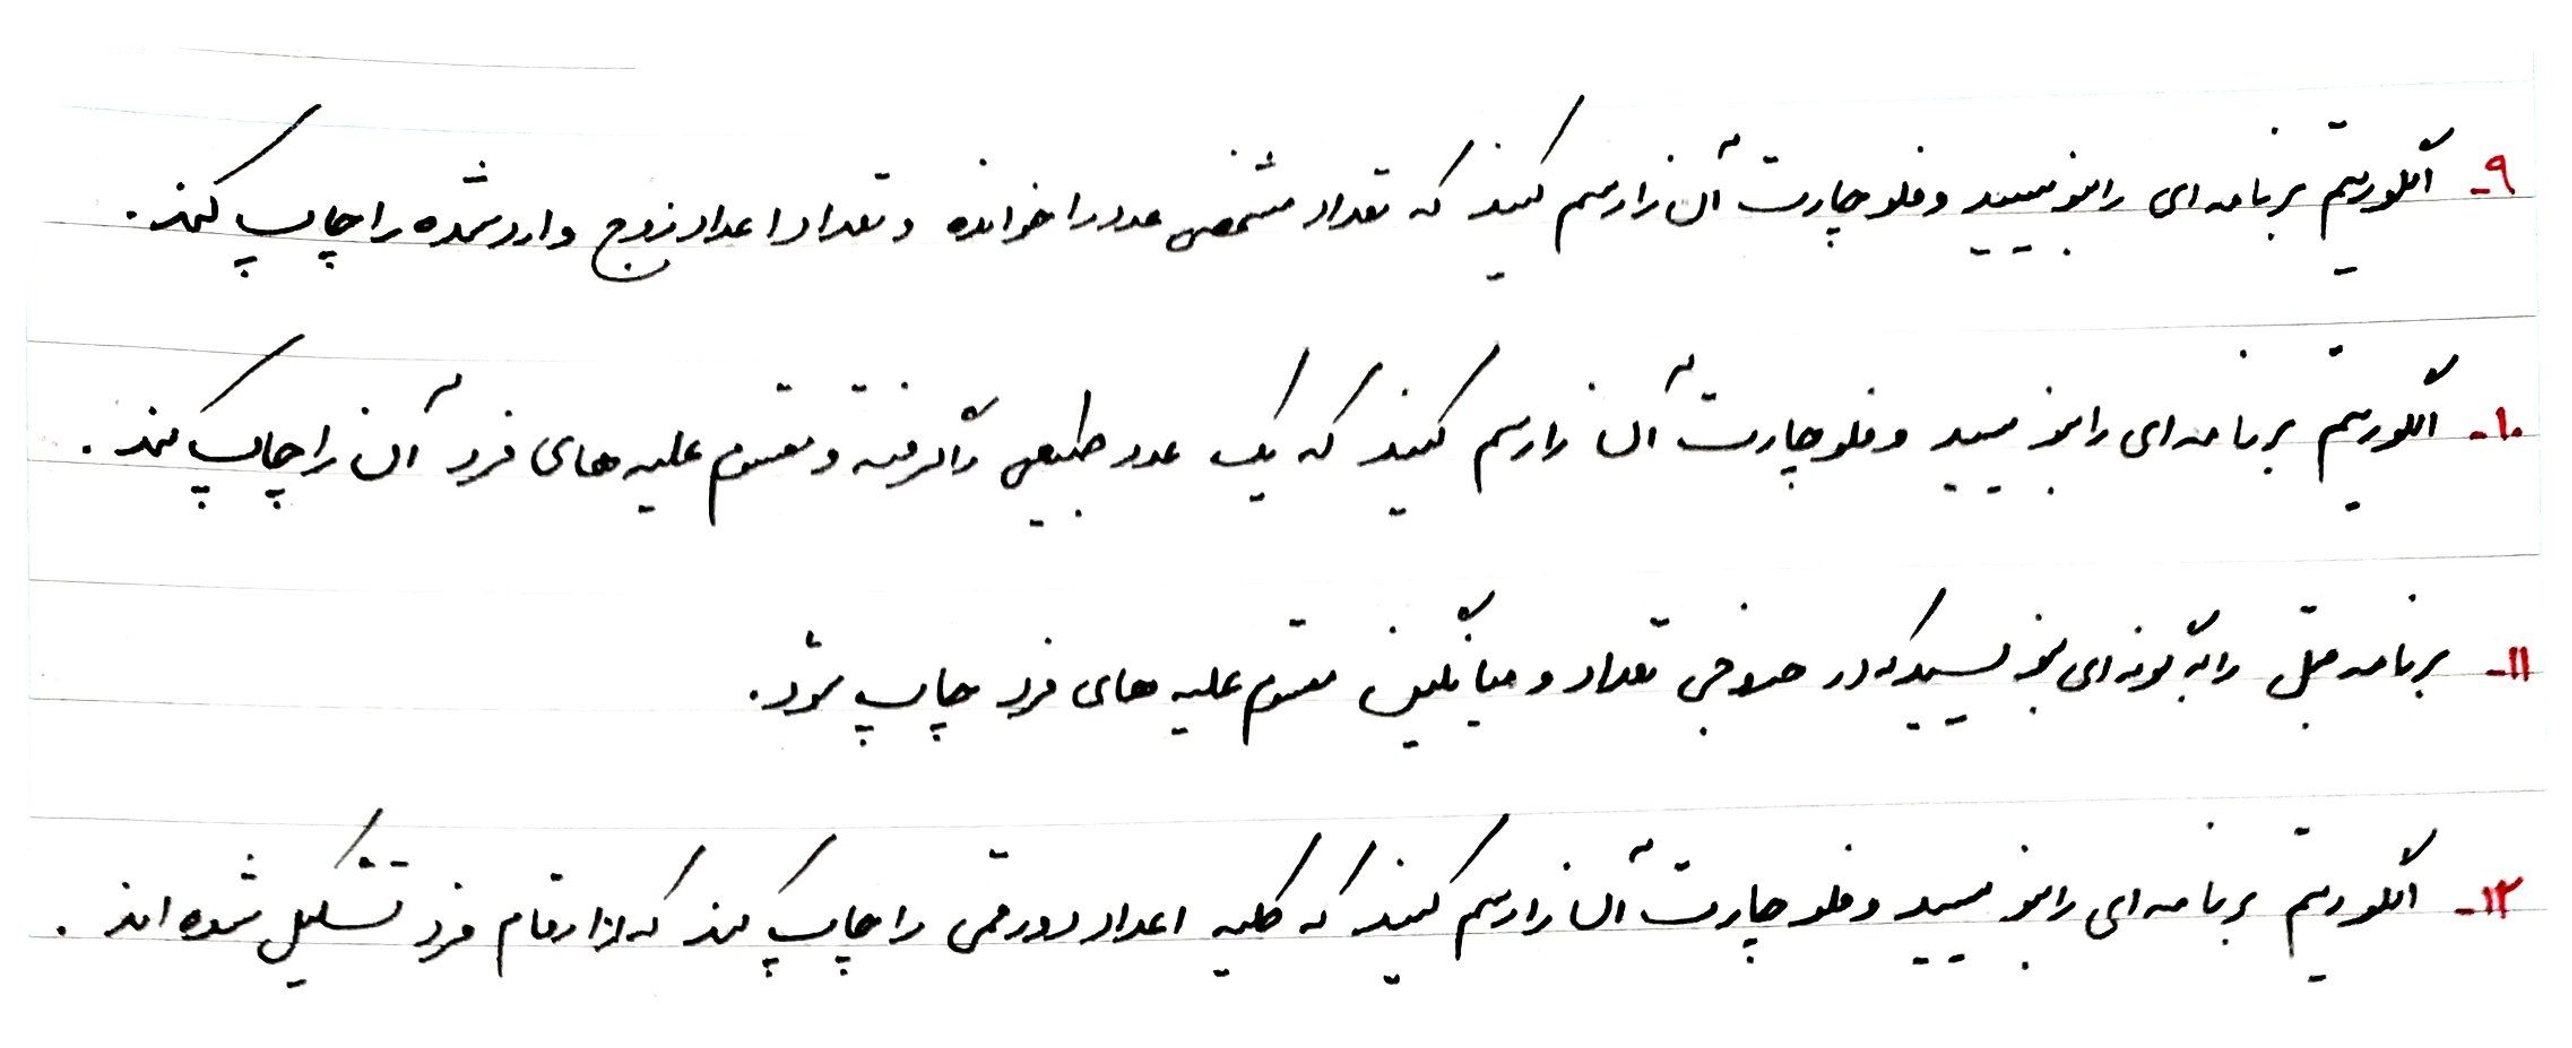 ۹- الگوریتم برنامه ای را بنویسید و فلوچارت آن را رسم کنید که تعداد مشخصی عدد را خوانده و تعداد اعداد زوج وارد شده را چاپ کند.
۱۰- الگوریتم برنامه ای را بنویسید و فلوچارت آن را رسم کنید که یک عدد طبیعی را گرفته و مقسوم علیه های فرد آن را چاپ کند.
۱۱- برنامه قبل را به گونه ای بنویسید که در خروجی تعداد و میانگین مقسوم علیه های فرد چاپ شود.
۱۲- الگوریتم برنامه ای را بنویسید و فلوچارت آن را رسم کنید که کلیه اعداد دو رقمی را چاپ کند که از ارقام فرد تشکیل شده اند.